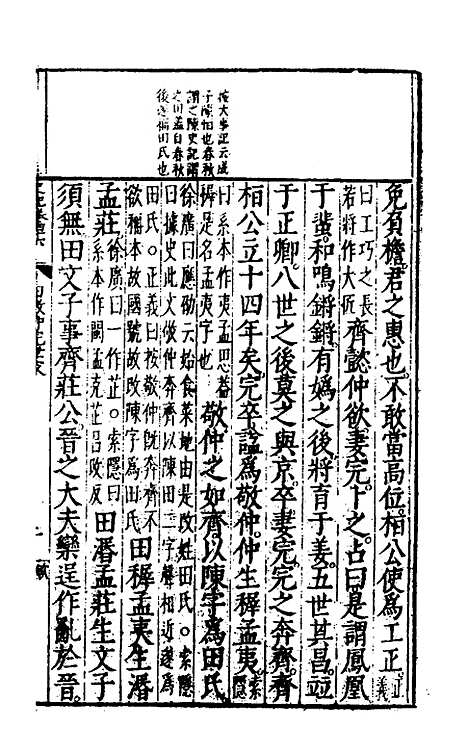 按大事記云成
子陳恒也春秋
謂之陳史記謂
之田蓋自春秋
後還偏田氏也
免負檐君之惠也不敢當高位桓公使爲工正正義
曰工巧之長若將作大匠齊懿仲欲妻完卜之占曰是謂鳳凰
于蜚和鳴鏘鏘有嬀之後將育于姜五世其昌竝
于正卿八世之後莫之與京卒妻完完之奔齊齊
桓公立十四年矣完卒謚爲敬仲仲生穉孟夷索隱
曰系本作夷孟思蓋穉是名孟夷字也敬仲之如齊以陳字爲田氏
徐廣曰應劭云始食菜地由是改姓田氏○索隱曰據史此文敬仲奔齊以陳田二字聲相近遂爲
田氏○正義曰按敬仲旣奔齊不欲稱本故國號故改陳字爲田氏田穉孟夷生湣
孟莊徐廣曰一作芷○索隱曰系本作閩孟克芷昌改反田湣孟莊生文子
須無田文子事齊莊公晉之大夫欒逞作亂於晉